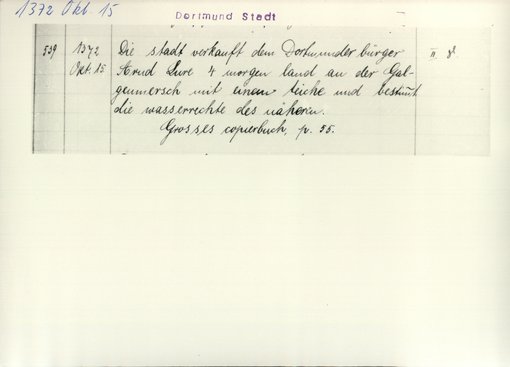 1372 Okt. 15
Dortmund Stadt
539 1372 Die stadt verkauft dem Dortmunder bürger
Okt. 15 Arnd Sure 4 morgen land an der Gal-
genmersch mit einem teiche und bestimt
die wasserrechte des näheren.
Grosses copierbuch, p. 55.